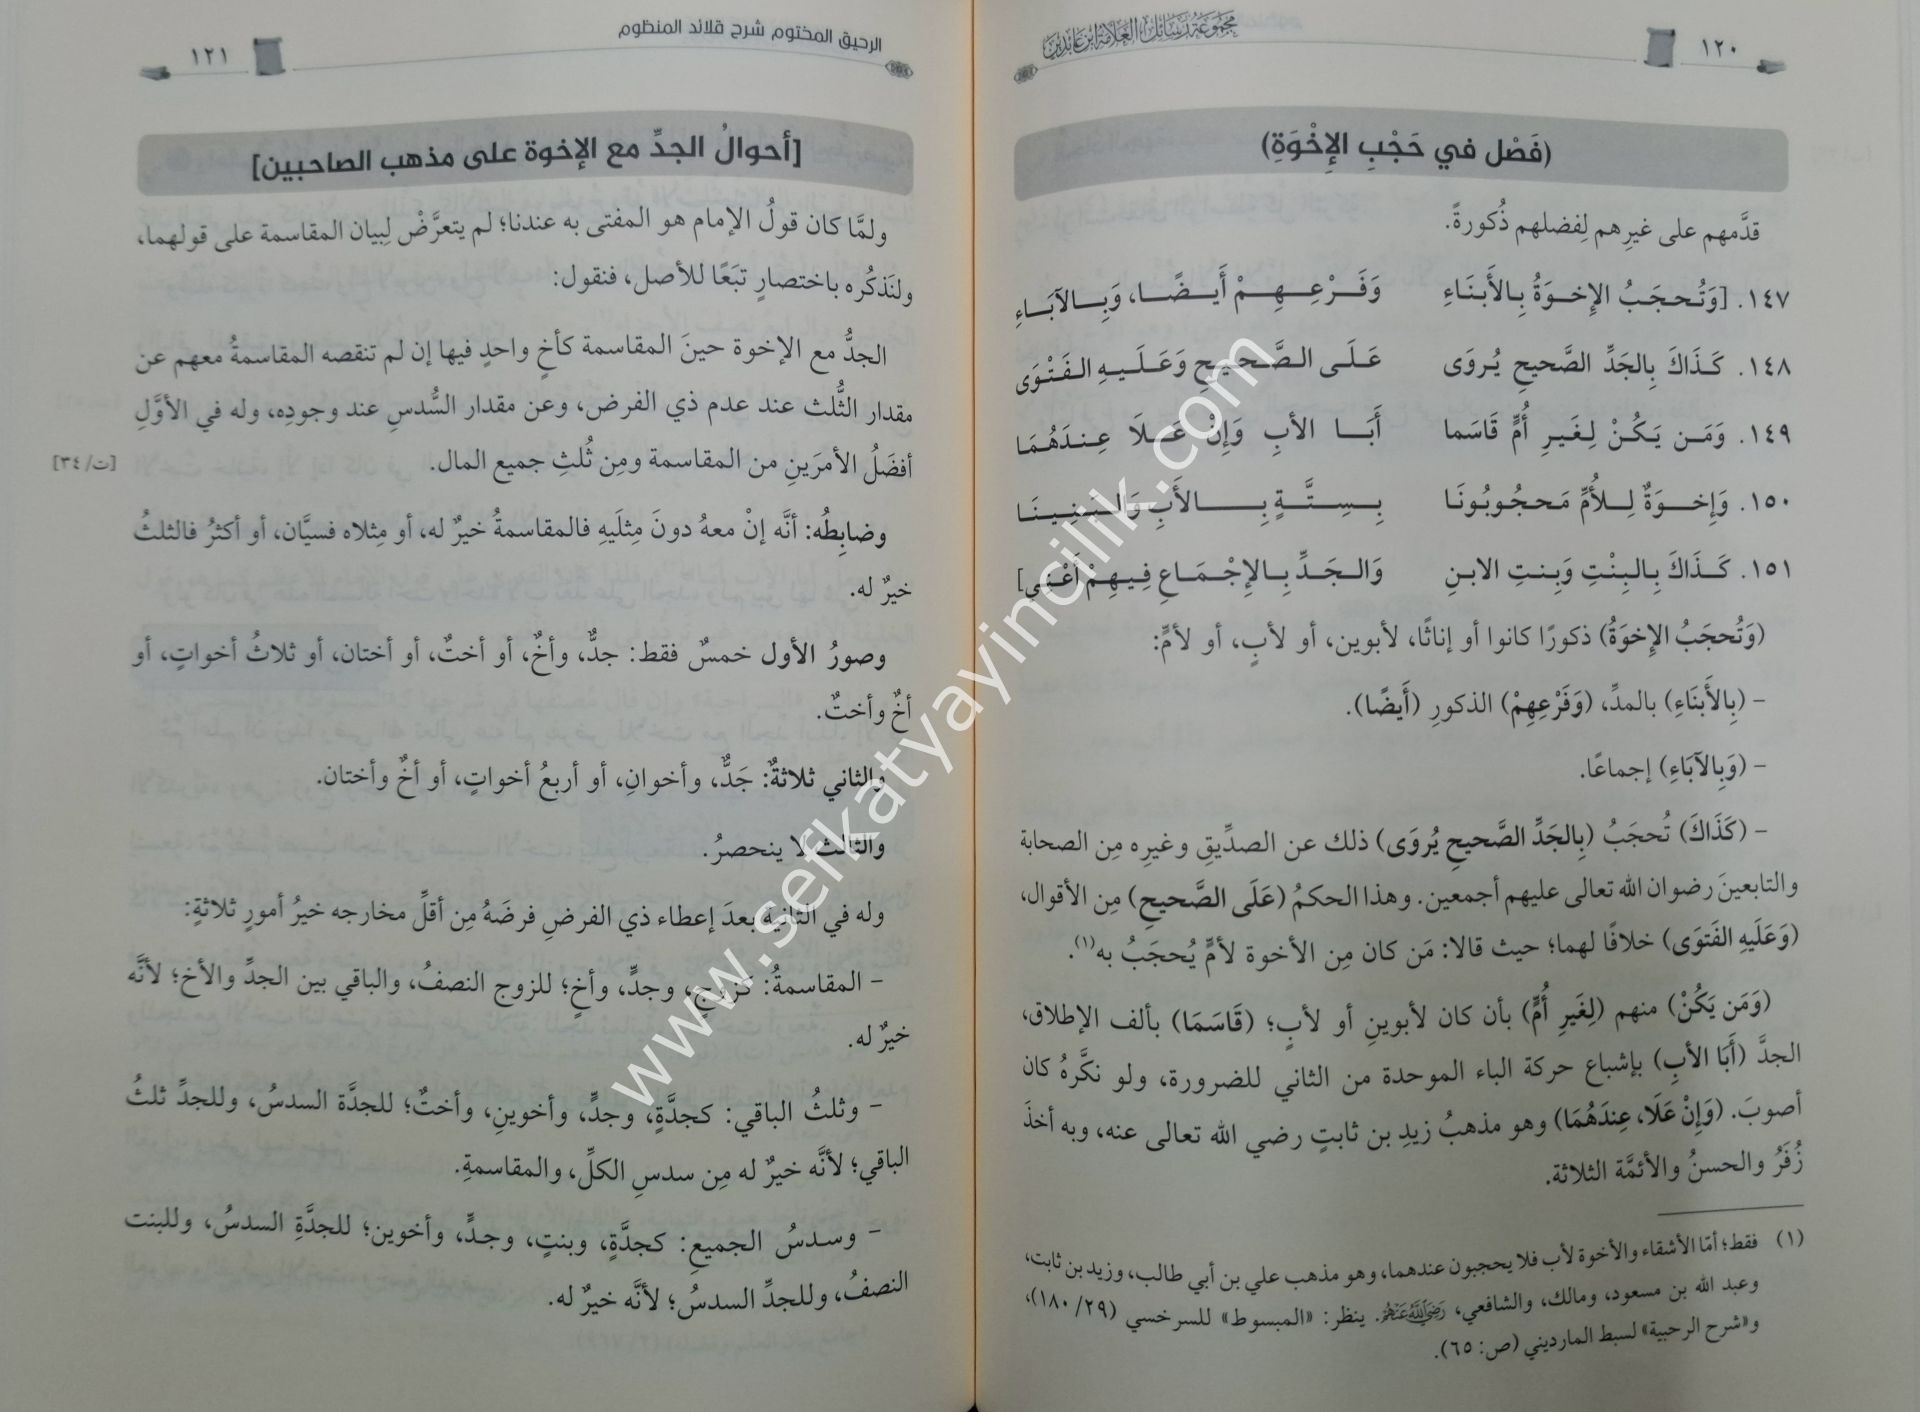 ١٢٠
مجموعة رسائل العلامة ابن عابدين
(فَصْل في حَجْبِ الإِخْوَةِ)
قدَّمهم على غيرِهم لِفضلهم ذُكورةً.
١٤٧. [وَتُحجَبُ الإِخوَةُ بِالأَبنَاءِ وَفَرْعِهِمْ أَيضًا، وَبِالآبَاءِ
١٤٨. كَذَاكَ بِالجَدِّ الصَّحيحِ يُروَى عَلَى الصَّحيحِ وَعَلَيهِ الفَتْوَى
١٤٩. وَمَن يَكُنْ لِغَيرِ أُمٍّ قَاسَما أَبَا الأبِ وَإِنْ عَلَا عِندَهُمَا
١٥٠. وَإِخوَةٌ لِلأُمِّ مَحجُوبُونَا بِستَّةٍ بِالأَبِ وَالبَنِينَا
١٥١. كَذَاكَ بِالبِنْتِ وَبِنتِ الابنِ وَالجَدِّ بِالإِجْمَاعِ فِيهِمْ أَعْنِي]
(وَتُحجَبُ الإِخوَةُ) ذكورًا كانوا أو إناثًا، لأبوين، أو لأبٍ، أو لأمٍّ:
– (بِالأَبنَاءِ) بالمدِّ، (وَفَرْعِهِمْ) الذكورِ (أَيضًا).
– (وَبِالآبَاءِ) إجماعًا.
– (كَذَاكَ) تُحجَبُ (بِالجَدِّ الصَّحيحِ يُروَى) ذلك عن الصدِّيقِ وغيرِه مِن الصحابة
والتابعينَ رضوان الله تعالى عليهم أجمعين. وهذا الحكمُ (عَلَى الصَّحيحِ) مِن الأقوال،
(وَعَلَيهِ الفَتوَى) خلافًا لهما؛ حيث قالا: مَن كان مِن الأخوة لأمٍّ يُحجَبُ به(١).
(وَمَن يَكُنْ) منهم (لِغَيرِ أُمٍّ) بأن كان لأبوينِ أو لأبٍ؛ (قَاسَمَا) بألف الإطلاق،
الجدَّ (أَبَا الأبِ) بإشباع حركة الباء الموحدة من الثاني للضرورة، ولو نكَّرهُ كان
أصوبَ. (وَإِنْ عَلَا، عِندَهُمَا) وهو مذهبُ زيدِ بن ثابتٍ رضي الله تعالى عنه، وبه أخذَ
زُفَرُ والحسنُ والأئمَّة الثلاثة.
(١) فقط؛ أمّا الأشقاء والأخوة لأب فلا يحجبون عندهما، وهو مذهب علي بن أبي طالب، وزيد بن ثابت،
وعبد الله بن مسعود، ومالك، والشافعي، رَضِيَ اللَّهُ عَنْهُمْ. ينظر: «المبسوط» للسرخسي (١٨٠/٢٩)،
و«شرح الرحبية» لسبط المارديني (ص: ٦٥).
الرحيق المختوم شرح قلائد المنظوم
١٢١
[أحوالُ الجدِّ مع الإخوة على مذهب الصاحبين]
ولمَّا كان قولُ الإمام هو المفتى به عندنا؛ لم يتعرَّضْ لِبيان المقاسمة على قولهما،
ولنَذكُره باختصارٍ تبَعًا للأصل، فنقول:
الجدُّ مع الإخوة حينَ المقاسمة كأخٍ واحدٍ فيها إن لم تنقصه المقاسمةُ معهم عن
مقدار الثُّلث عند عدم ذي الفرض، وعن مقدار السُّدسِ عند وجودِه، وله في الأوَّلِ
أفضَلُ الأمرَينِ من المقاسمة ومِن ثُلثِ جميع المال.
[ت/٣٤]
وضابِطُه: أنَّه إنْ معهُ دونَ مِثلَيهِ فالمقاسمةُ خيرٌ له، أو مِثلاه فسيَّان، أو أكثرُ فالثلثُ
خيرٌ له.
وصورُ الأول خمسٌ فقط: جدٌّ، وأخٌ، أو أختٌ، أو أختان، أو ثلاثُ أخواتٍ، أو
أخٌ وأختٌ.
والثاني ثلاثةٌ: جَدٌّ، وأخوانِ، أو أربعُ أخواتٍ، أو أخٌ وأختان.
والثالث لا ينحصرُ.
وله في الثانية بعدَ إعطاء ذي الفرضِ فرضَهُ مِن أقلِّ مخارجه خيرُ أمورٍ ثلاثةٍ:
– المقاسمةُ: كزوجٍ، وجدٍّ، وأخٍ؛ للزوج النصفُ، والباقي بين الجدِّ والأخ؛ لأنَّه
خيرٌ له.
– وثلثُ الباقي: كجدَّةٍ، وجدٍّ، وأخوينِ، وأختٌ؛ للجدَّة السدسُ، وللجدِّ ثلثُ
الباقي؛ لأنَّه خيرٌ له مِن سدسِ الكلِّ، والمقاسمةِ.
– وسدسُ الجميعِ: كجدَّةٍ، وبنتٍ، وجدٍّ، وأخوين؛ للجدَّةِ السدسُ، وللبنت
النصفُ، وللجدِّ السدسُ؛ لأنَّه خيرٌ له.
www.sefkatyayincilik.com